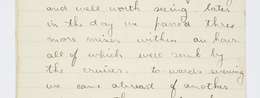 and well worth seeing. Later
in the day we passed three
more mines within an hour
all of which were sunk by
the cruiser. towards evening
we came abreast of another